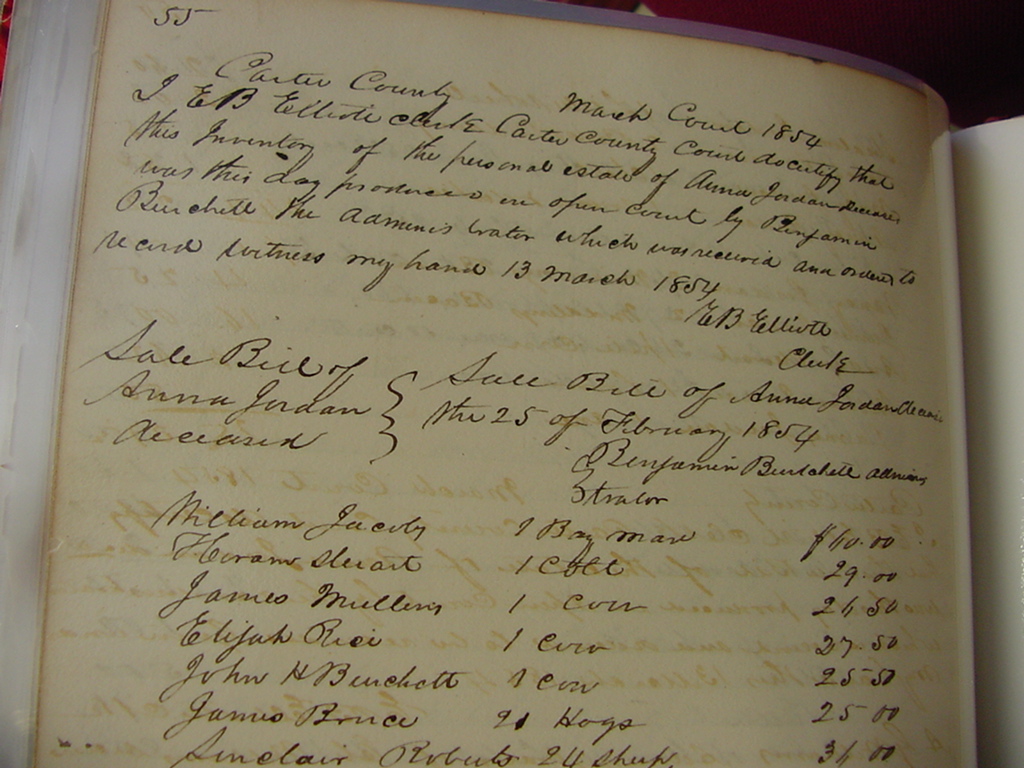 55
Carter County March Court 1854
I EB Elliott clerk Carter County Court do certify that
this Inventory of the personal estate of Anna Jordan deceased
was this day produced in open court by Benjamin
Burchett the adminis trator which was receivd and ordered to
record witness my hand 13 March 1854
EB Elliott
Clerk
Sale Bill of
Anna Jordan
deceased
Sale Bill of Anna Jordan deceased
the 25 of February 1854
Benjamin Burchett admini
strator
William Jacobs 1 Bay mare $60.00
Hiram Stewart 1 Colt 29.00
James Mullens 1 Cow 26 50
Elijah Rice 1 Cow 27.50
John H Burchett 1 Cow 25 50
James Bruce 21 Hogs 25 00
Sinclair Roberts 24 sheep 31 00